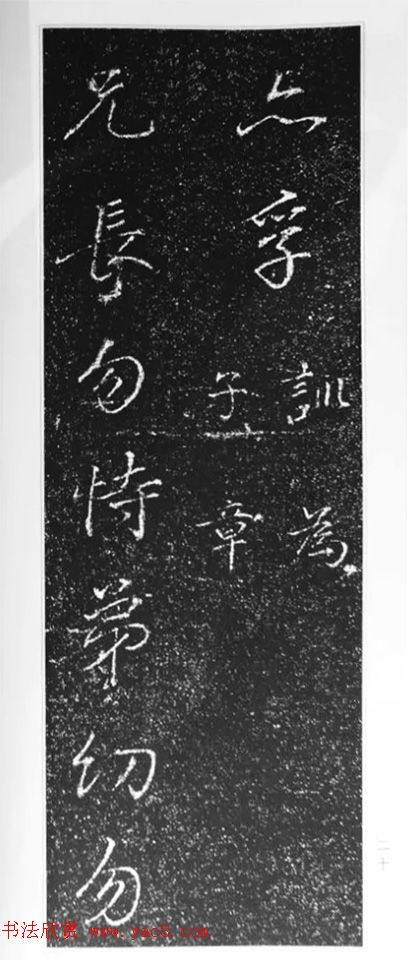 亦孚
訓為
子章
兄長勿恃弟幼勿
二十
书法欣赏 www.yac8.com